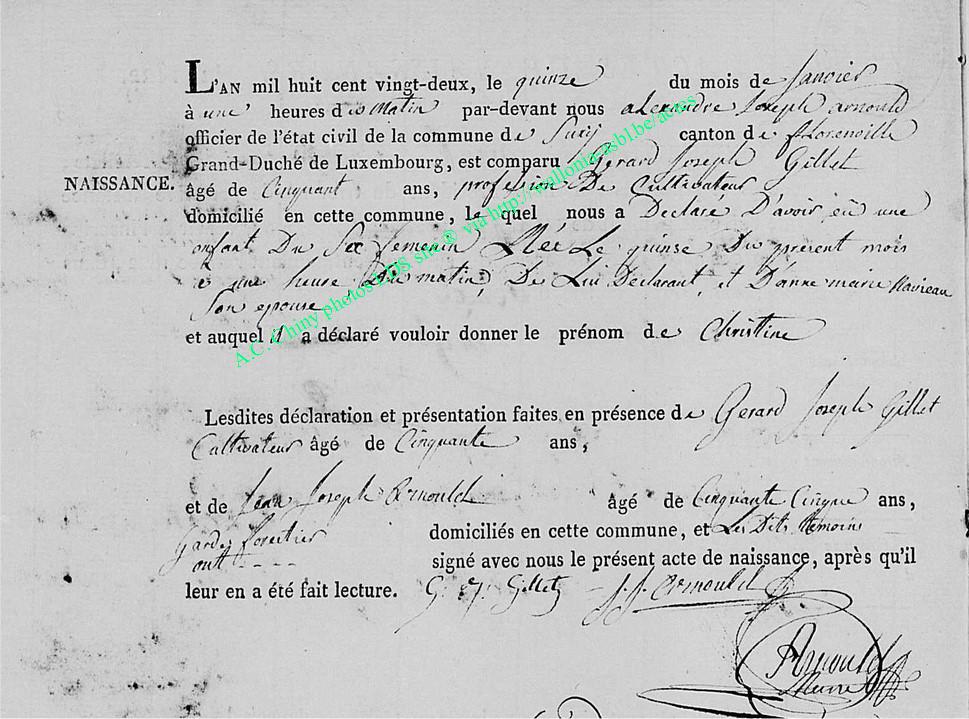 L'AN mil huit cent vingt-deux, le quinze du mois de Janvier
à une heures du Matin par-devant nous alexandre Joseph arnould
officier de l'état civil de la commune de Suxÿ canton de florenville
Grand-Duché de Luxembourg, est comparu Gerard Joseph Gillet
NAISSANCE. âgé de Cinquant ans, profession De Cultivateur
domicilié en cette commune, le quel nous a Declaré D'avoir eü une
enfant Du Sex femenin Née Le quinse Du present mois
a une heure Du matin, De Lui Declarant, et D'anne marie
Son epouse
et auquel il a déclaré vouloir donner le prénom de Christine
Lesdites déclaration et présentation faites en présence de Gerard Joseph Gillet
Cultivateur âgé de Cinquante ans,
et de Jean Joseph Arnould âgé de Cinquante Cinque ans,
Garde forestier domiciliés en cette commune, et Les Dits temoins
ont signé avec nous le présent acte de naissance, après qu'il
leur en a été fait lecture. G. J. Gillet J. J. Arnould
Arnould
A.C. Chiny photos LDS site® via http://wallonia-asbl.be/actes